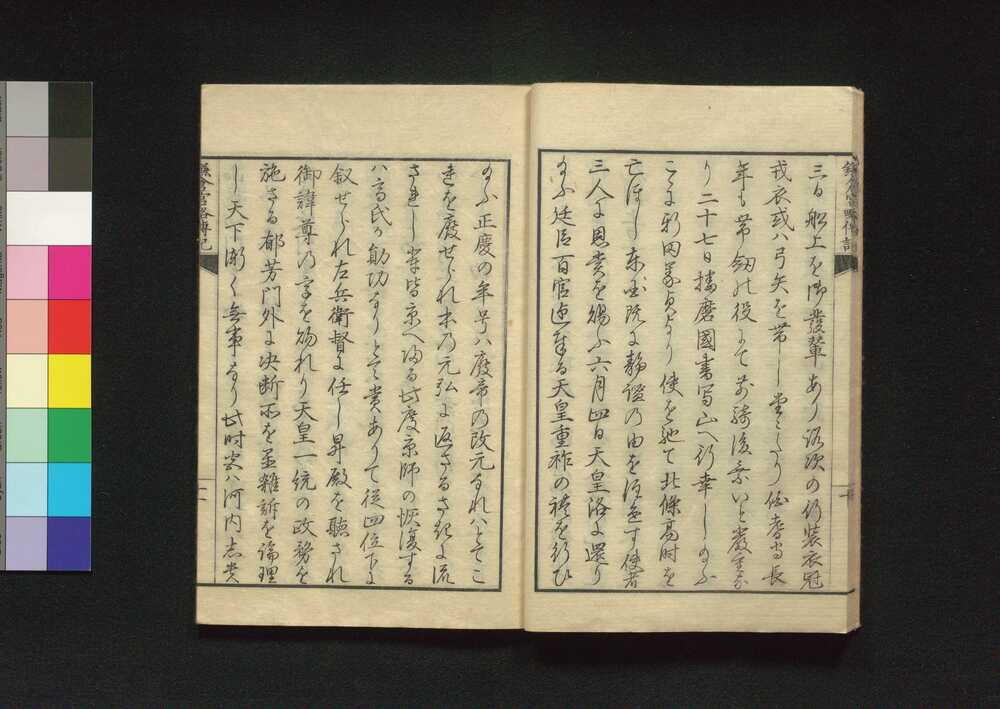 三日船上を御發輦あり路次の行装衣冠
戎衣或ハ弓矢を帯し
年も帯釼の役にて前騎後乗いと嚴重な
り二十七日播磨國書写山へ行幸したまふ
こゝに新田義貞より使を馳て北條髙時を
亡ほし東國既に静謐の由を注進す使者
三人に恩賞を賜ふ六月四日天皇洛に還り
たまふ廷臣百官迎奉る天皇重祚の禮を行ひ
たまふ正慶の年号ハ廢帝の改元なれハとてこ
達を廢せられ本の元弘に返さるさきに流
されし輩皆京へ帰る此度京師の恢復する
ハ髙氏が勛功なりとて賞ありて従四位下に
叙せられ左兵衛督に任し昇殿を聴され
御諱尊の字を賜れり天皇一統の政務を
施さる郁芳門外に决断所を置雑訴を論理
し天下漸く無事なり此時宮ハ河内志貴
鎌倉宮略傳記
鎌倉宮略傳記